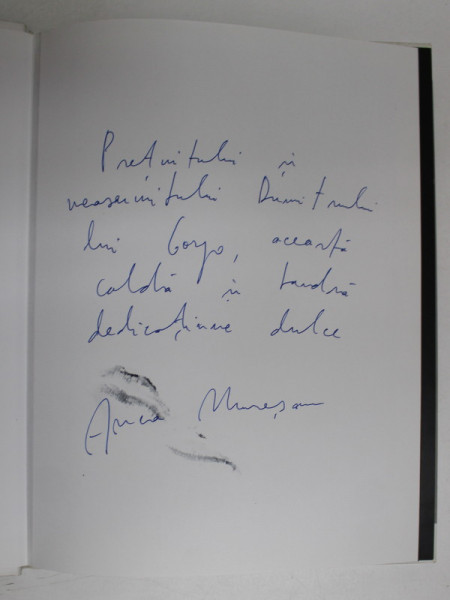 Prețuitului și
neasemuitului Dumitrului
lui Gorzo, această
caldă și tandră
dedicațiune dulce
Anca Mureșan